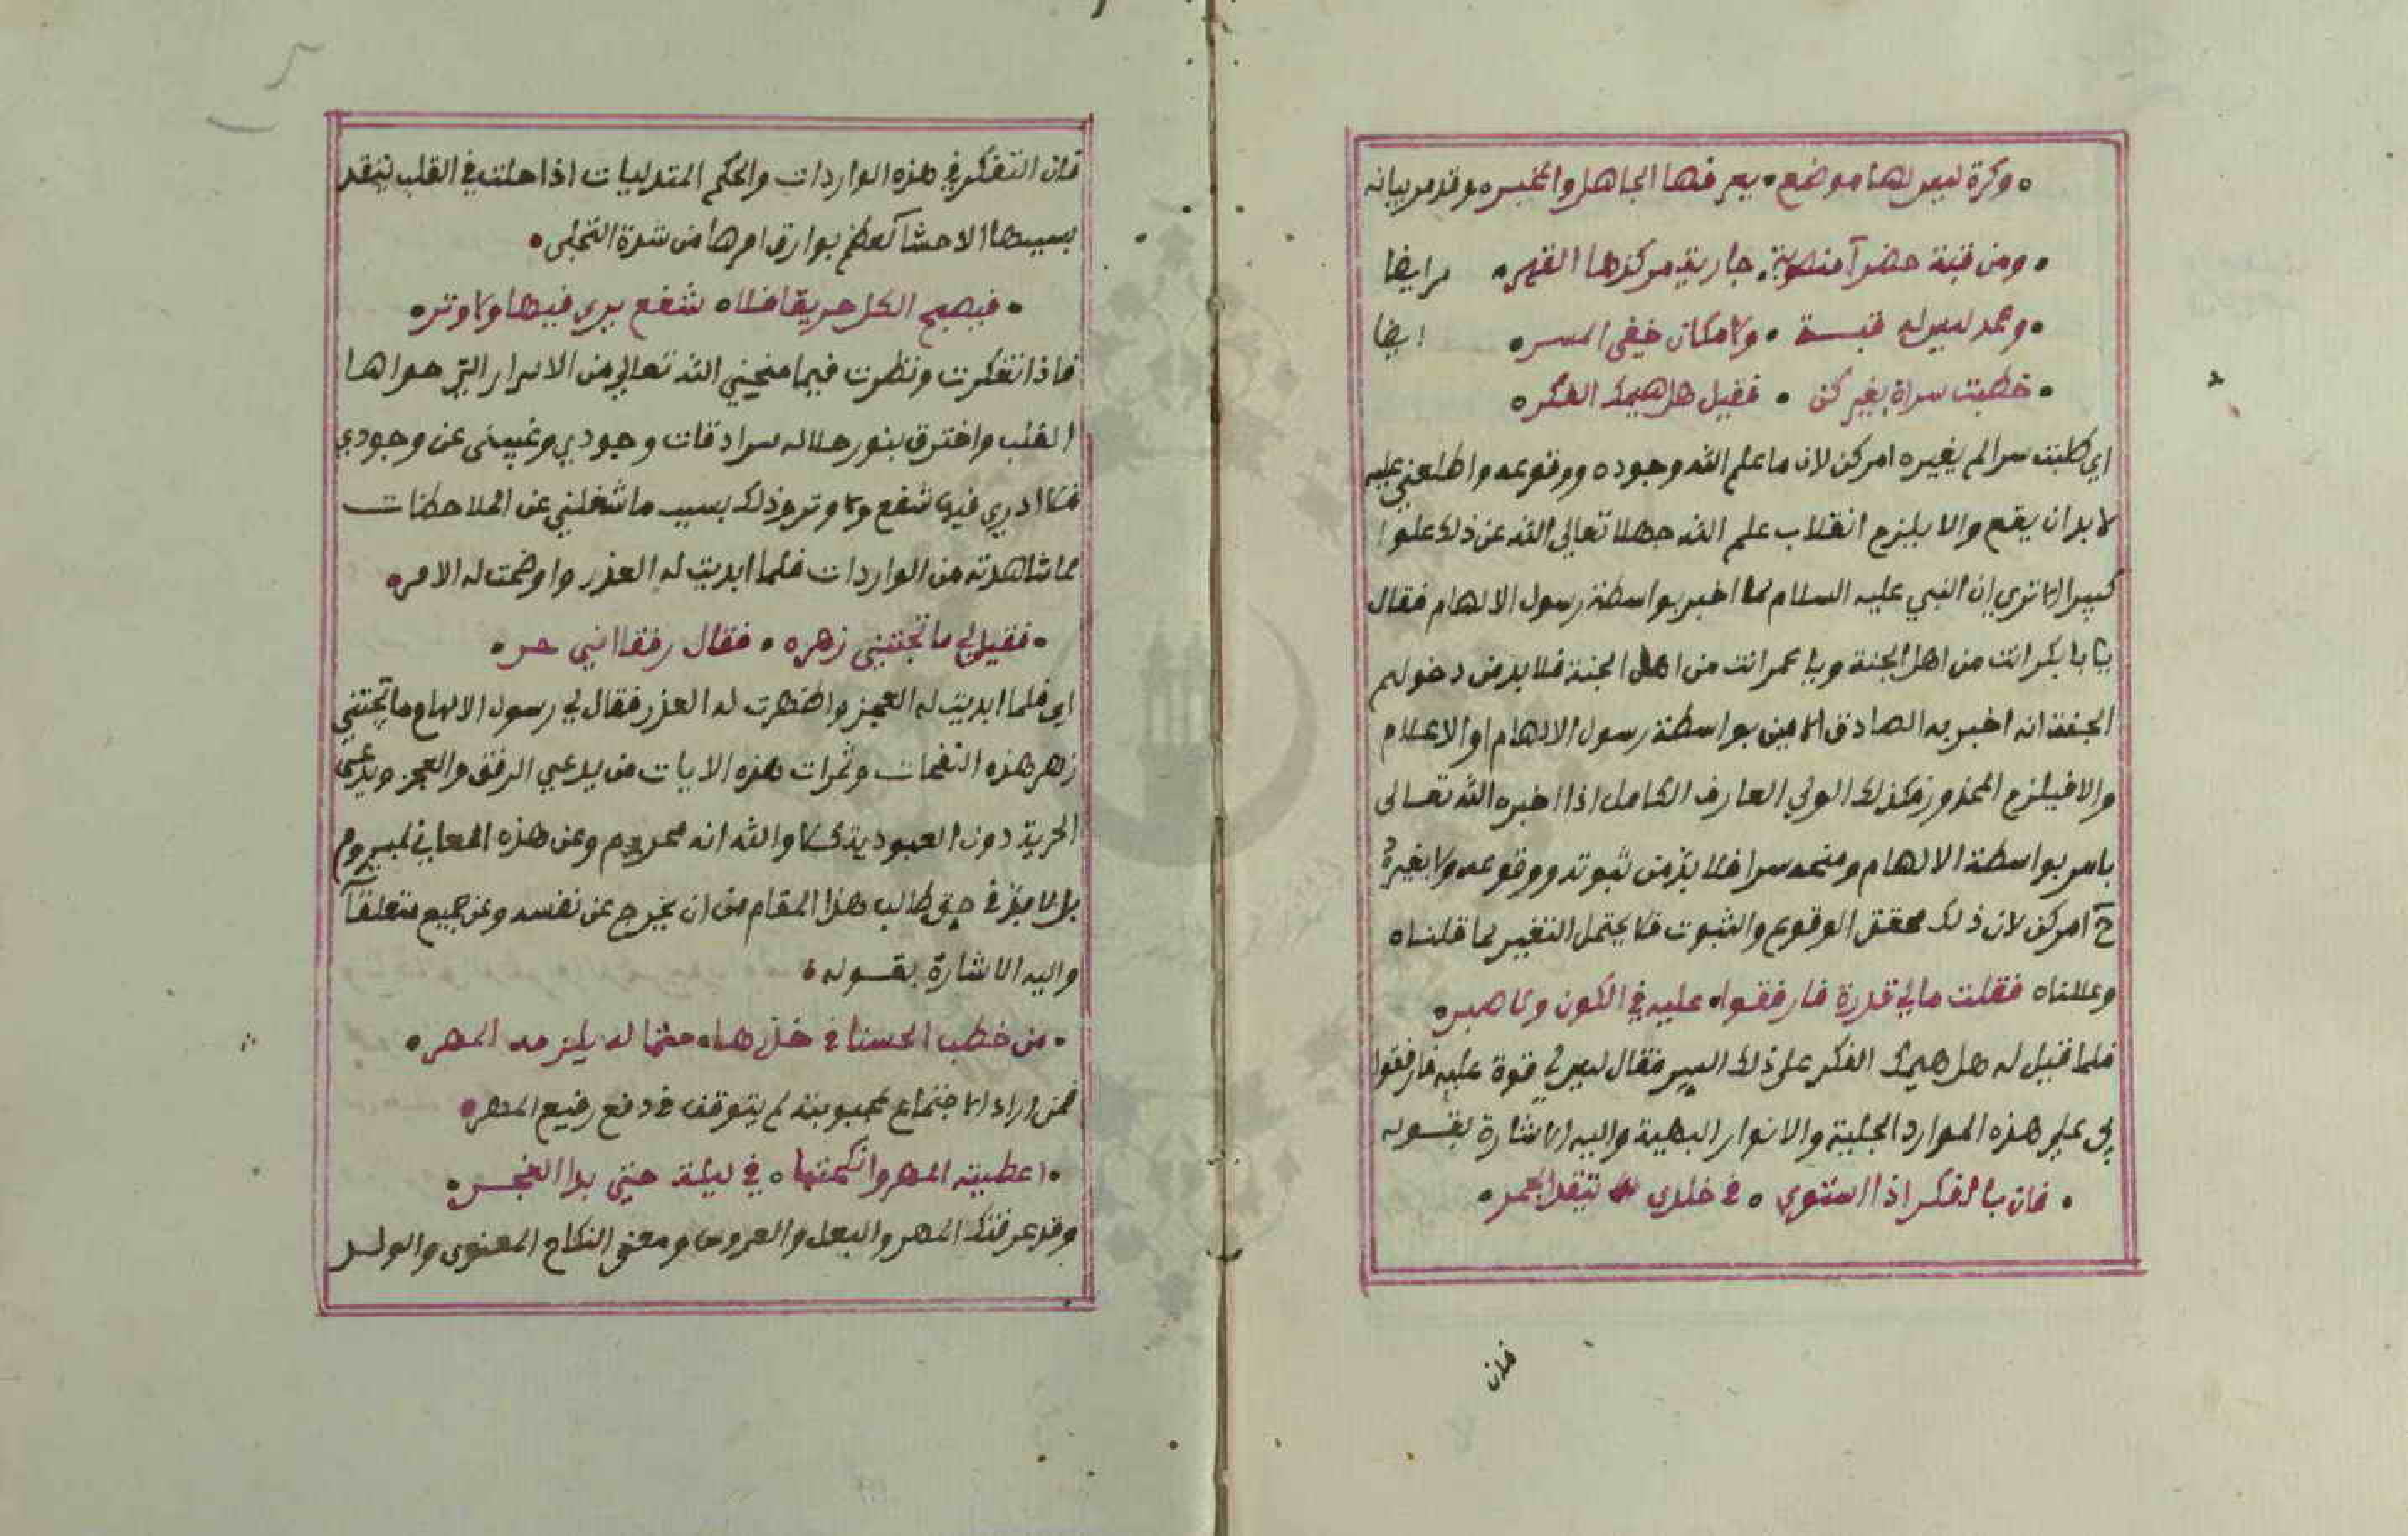 وكرة ليس لها موضع • يعرفها الجاهل والخبر • وقد مر بيانه
• ومن قبة خضرآ منصوبة • جارية مركزها القهر • مر ايضا
• وعمد ليس له قبة • ولا مكان خفي السر • ايضا
• خطبت سرا لم يغيره كن • فقيل هل هيمك الفكر •
اي طلبت سرا لم يغيره امر كن لان ما علم الله وجوده ووقوعه واطلعني عليه
لا بد ان يقع والا يلزم انقلاب علم الله جهلا تعالى الله عن ذلك علوا
كبيرا الا ترى ان النبي عليه السلام لما اخبر بواسطة رسول الالهام فقال
يا ابا بكر انت من اهل الجنة ويا عمر انت من اهل الجنة فلا بد من دخولهم
الجنة انه اخبر به الصادق الامين بواسطة رسول الالهام او الاعلام
والا فيلزم المحذور فكذلك الولي العارف الكامل اذا اخبره الله تعالى
بامر بواسطة الالهام ومنحه سرا فلا بد من ثبوته ووقوعه ولا يغيره
ح امر كن لان ذلك محقق الوقوع والثبوت فلا يحتمل التغير لما قلناه
وعللناه فقلت مالي قدرة فارفقوا • عليه في الكون ولا صبر •
فلما قيل له هل هيمك الفكر على ذلك السر فقال ليس لي قوة عليه فارفقوا
بي على هذه الموارد الجلية والانوار البهية واليه الاشارة بقوله
• فان بالفكر اذا استوى • في خلدي تتقد الجمر •
فان
فان التفكر في هذه الواردات والحكم المتدليات اذا حلت في القلب تتقد
بسببها الاحشا لعظم بوارق امرها من شدة التجلي •
• فيصبح الكل حريقا فلا • شفع يرى فيها ولا وتر •
فاذا تفكرت ونظرت فيما منحني الله تعالى من الاسرار التي حواها
القلب واخترق بنور جلاله سرادقات وجودي وغيبني عن وجودي
فلا ادري فيها شفع ولا وتر وذلك بسبب ما شغلني عن الملاحظات
بما شاهدته من الواردات فلما ابديت له العذر واوضحت له الامر •
• فقيل لي ما تجتني زهره • فقال رفقا انني حر •
اي فلما ابديت له العجز واظهرت له العذر فقال لي رسول الالهام ما تجتني
زهر هذه النفحات وثمرات هذه الايات من يدعي الرفق والعجز ويدعى
الحرية دون العبودية كلا والله انه محروم وعن هذه المعاني لمبروم
بل لا بد في حق طالب هذا المقام من ان يخرج عن نفسه وعن جميع متعلقا
واليه الاشارة بقوله •
• من خطب الحسنا في خدرها • حتما له يلزمه المهر •
فمن اراد الاجتماع بمحبوبته لم يتوقف في دفع رفيع المهر •
• اعطيته المهر وانكحتها • في ليلة حتى بدا الفجر •
وقد عرفتك المهر والبعل والعروس ومعنى النكاح المعنوى والولد